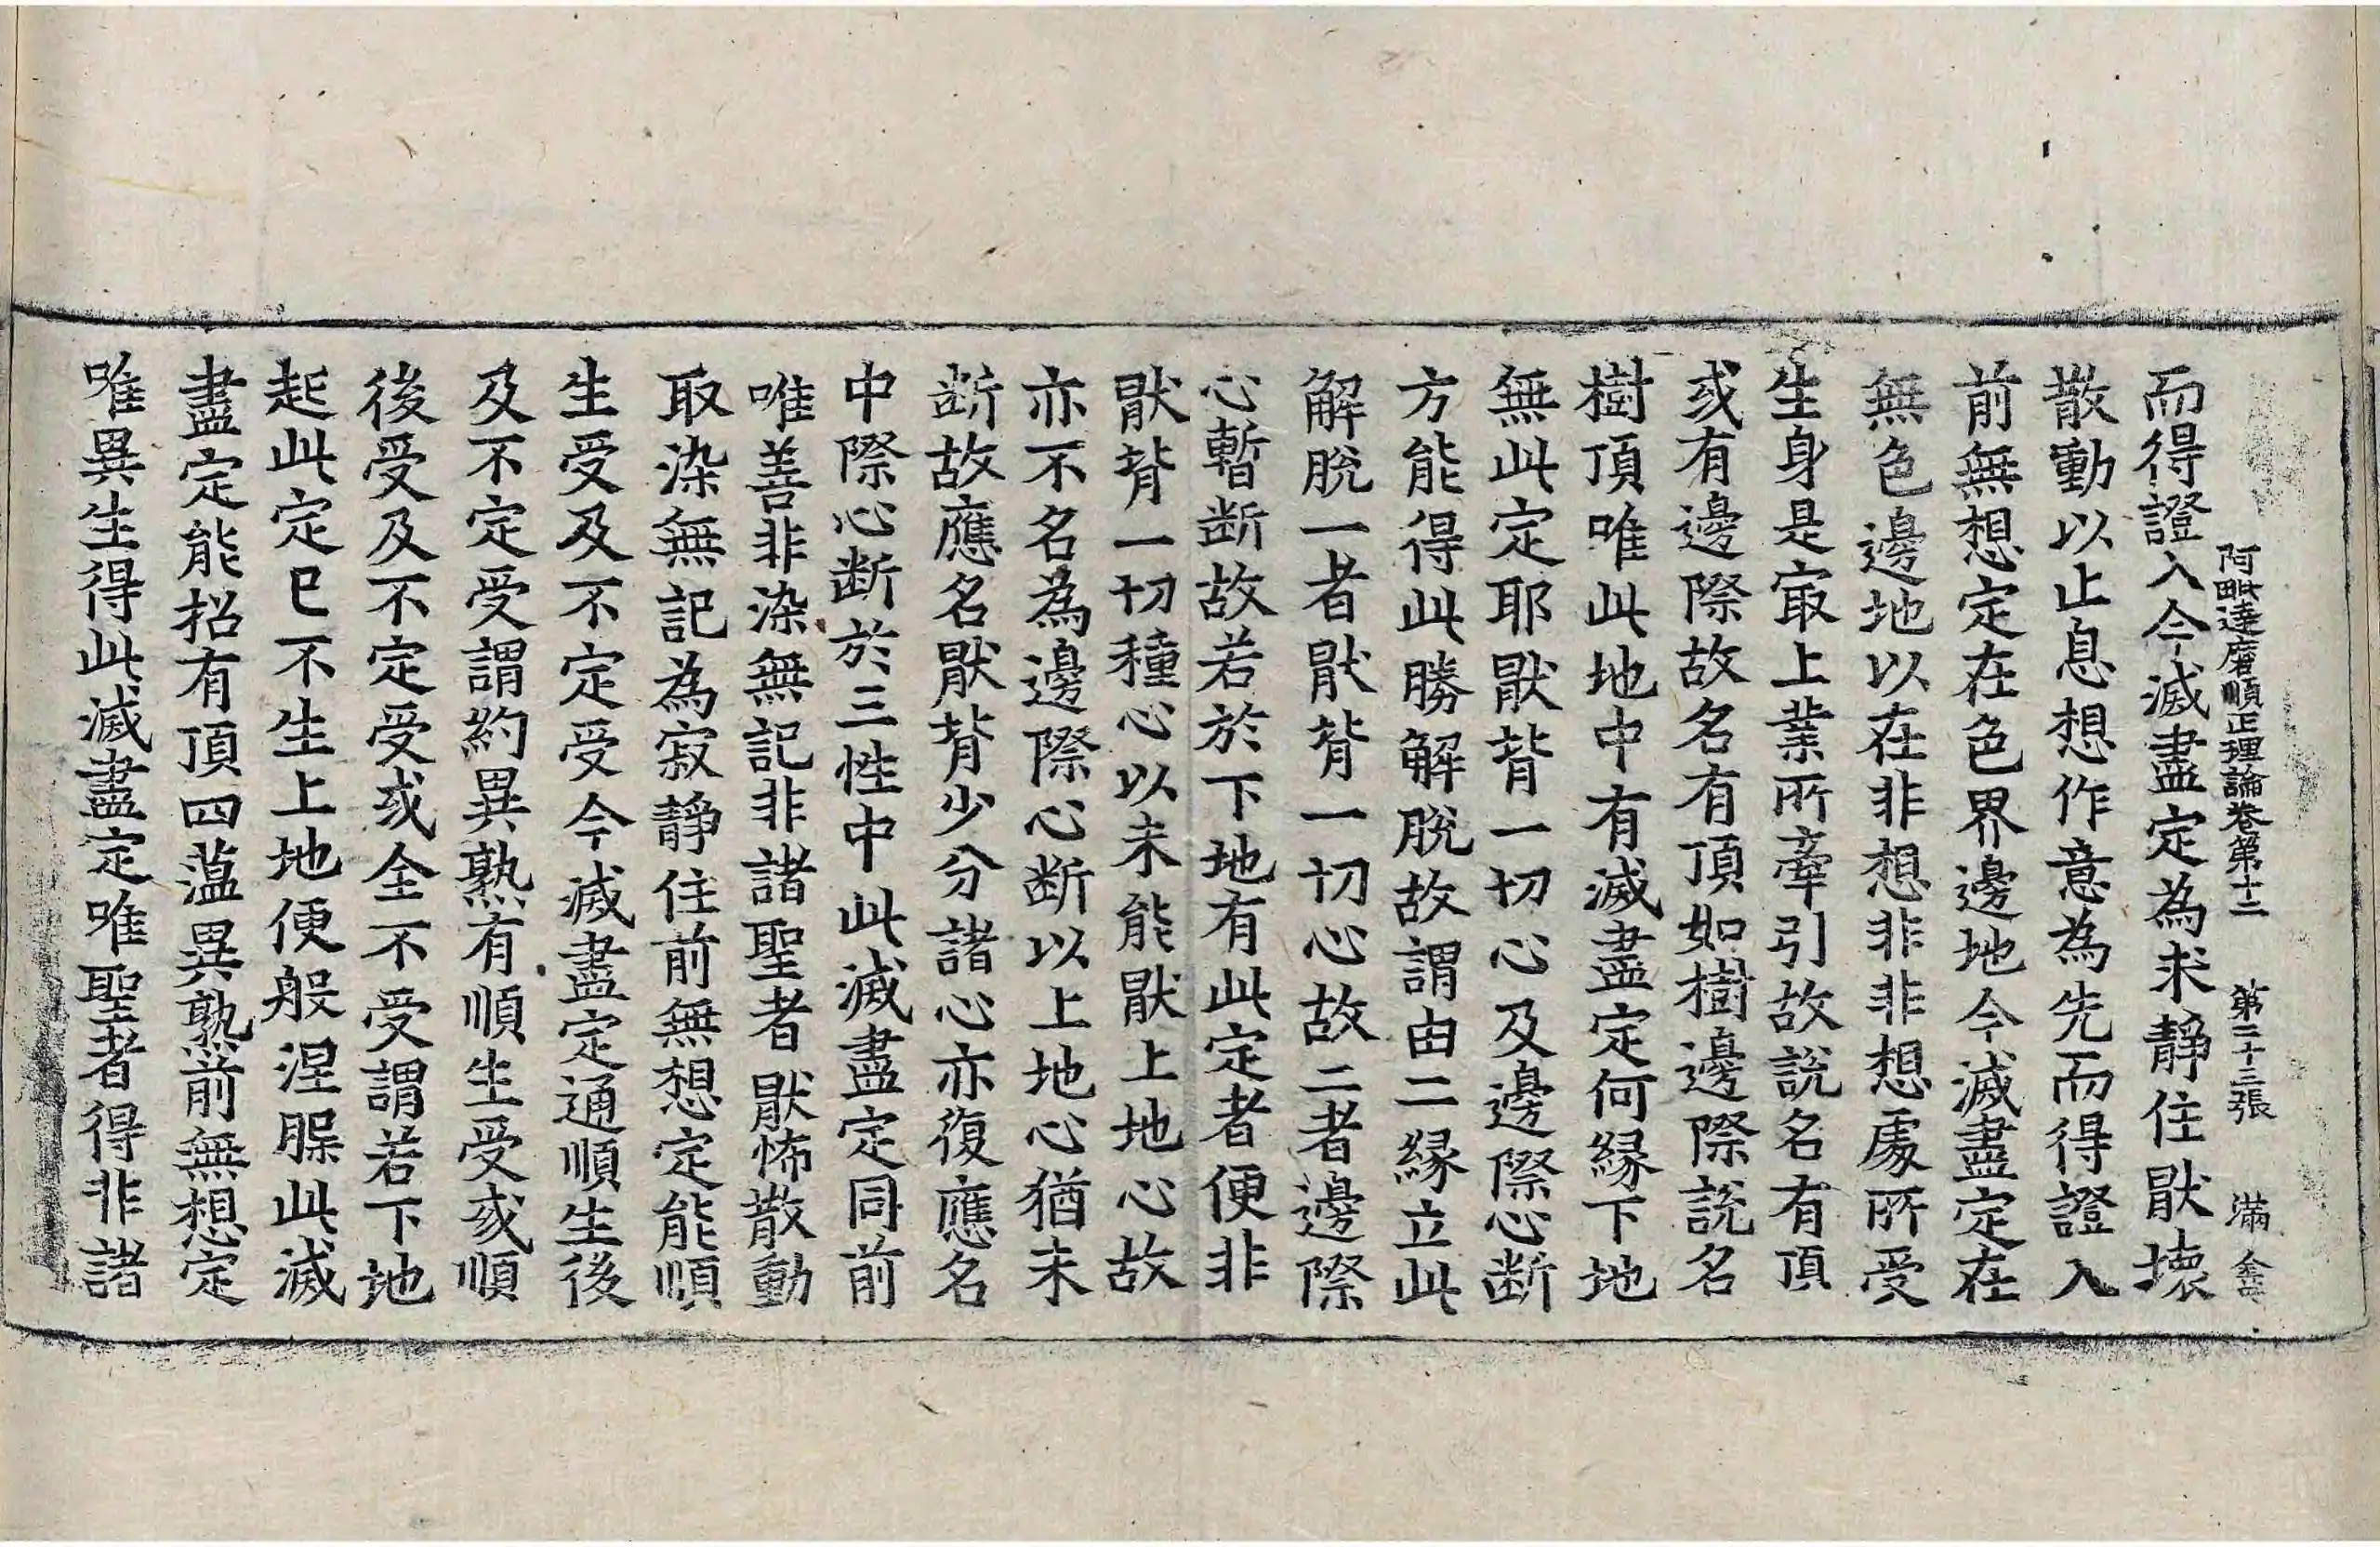 阿毗達磨順正理論卷第十二 第二十三張 滿
而得證入今滅盡定為求靜住猒壞
散動以止息想作意為先而得證入
前無想定在色界邊地今滅盡定在
無色邊地以在非想非非想處所受
生身是㝡上業所牽引故說名有頂
或有邊際故名有頂如樹邊際說名
樹頂唯此地中有滅盡定何緣下地
無此定耶猒背一切心及邊際心断
方能得此勝解脫故謂由二緣立此
解脫一者猒背一切心故二者邊際
心暫断故若於下地有此定者便非
猒背一切種心以未能猒上地心故
亦不名為邊際心断以上地心猶未
断故應名猒背少分諸心亦復應名
中際心断於三性中此滅盡定同前
唯善非染無記非諸聖者猒怖散動
取染無記為寂靜住前無想定能順
生受及不定受今滅盡定通順生後
及不定受謂約異熟有順生受或順
後受及不定受或全不受謂若下地
起此定已不生上地便般涅槃此滅
盡定能招有頂四蘊異熟前無想定
唯異生得此滅盡定唯聖者得非諸